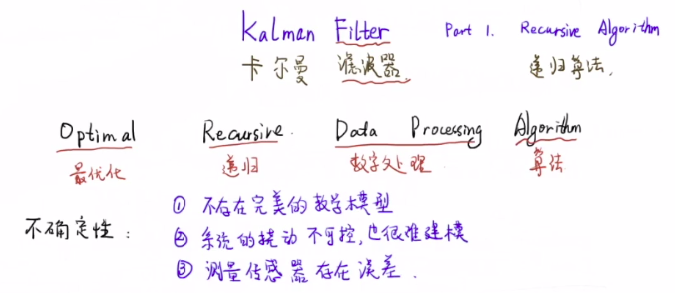 Kalman Filter Part 1. Recursive Algorithm
卡尔曼 滤波器 递归算法.
Optimal Recursive Data Processing Algorithm
最优化 递归 数字处理 算法
① 不存在完美的数学模型
不确定性: ② 系统的扰动不可控,也很难建模
③ 测量传感器存在误差.